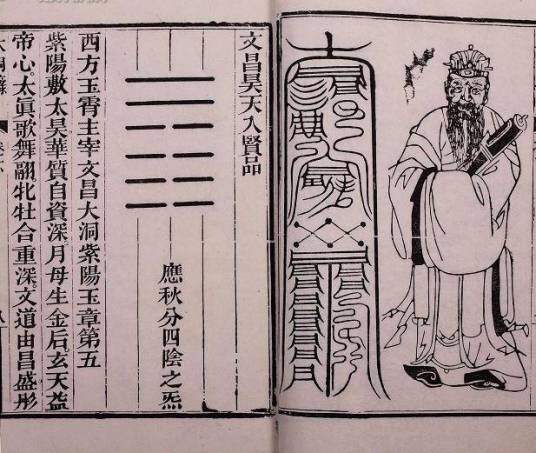 文昌昊天入賢品
應秋分四陰之炁
西方玉霄主宰文昌大洞紫陽玉章第五
紫陽敷太昊華質自資深月母生金后玄天益
帝心太眞歌舞翮牝牡合重深文道由昌盛彤